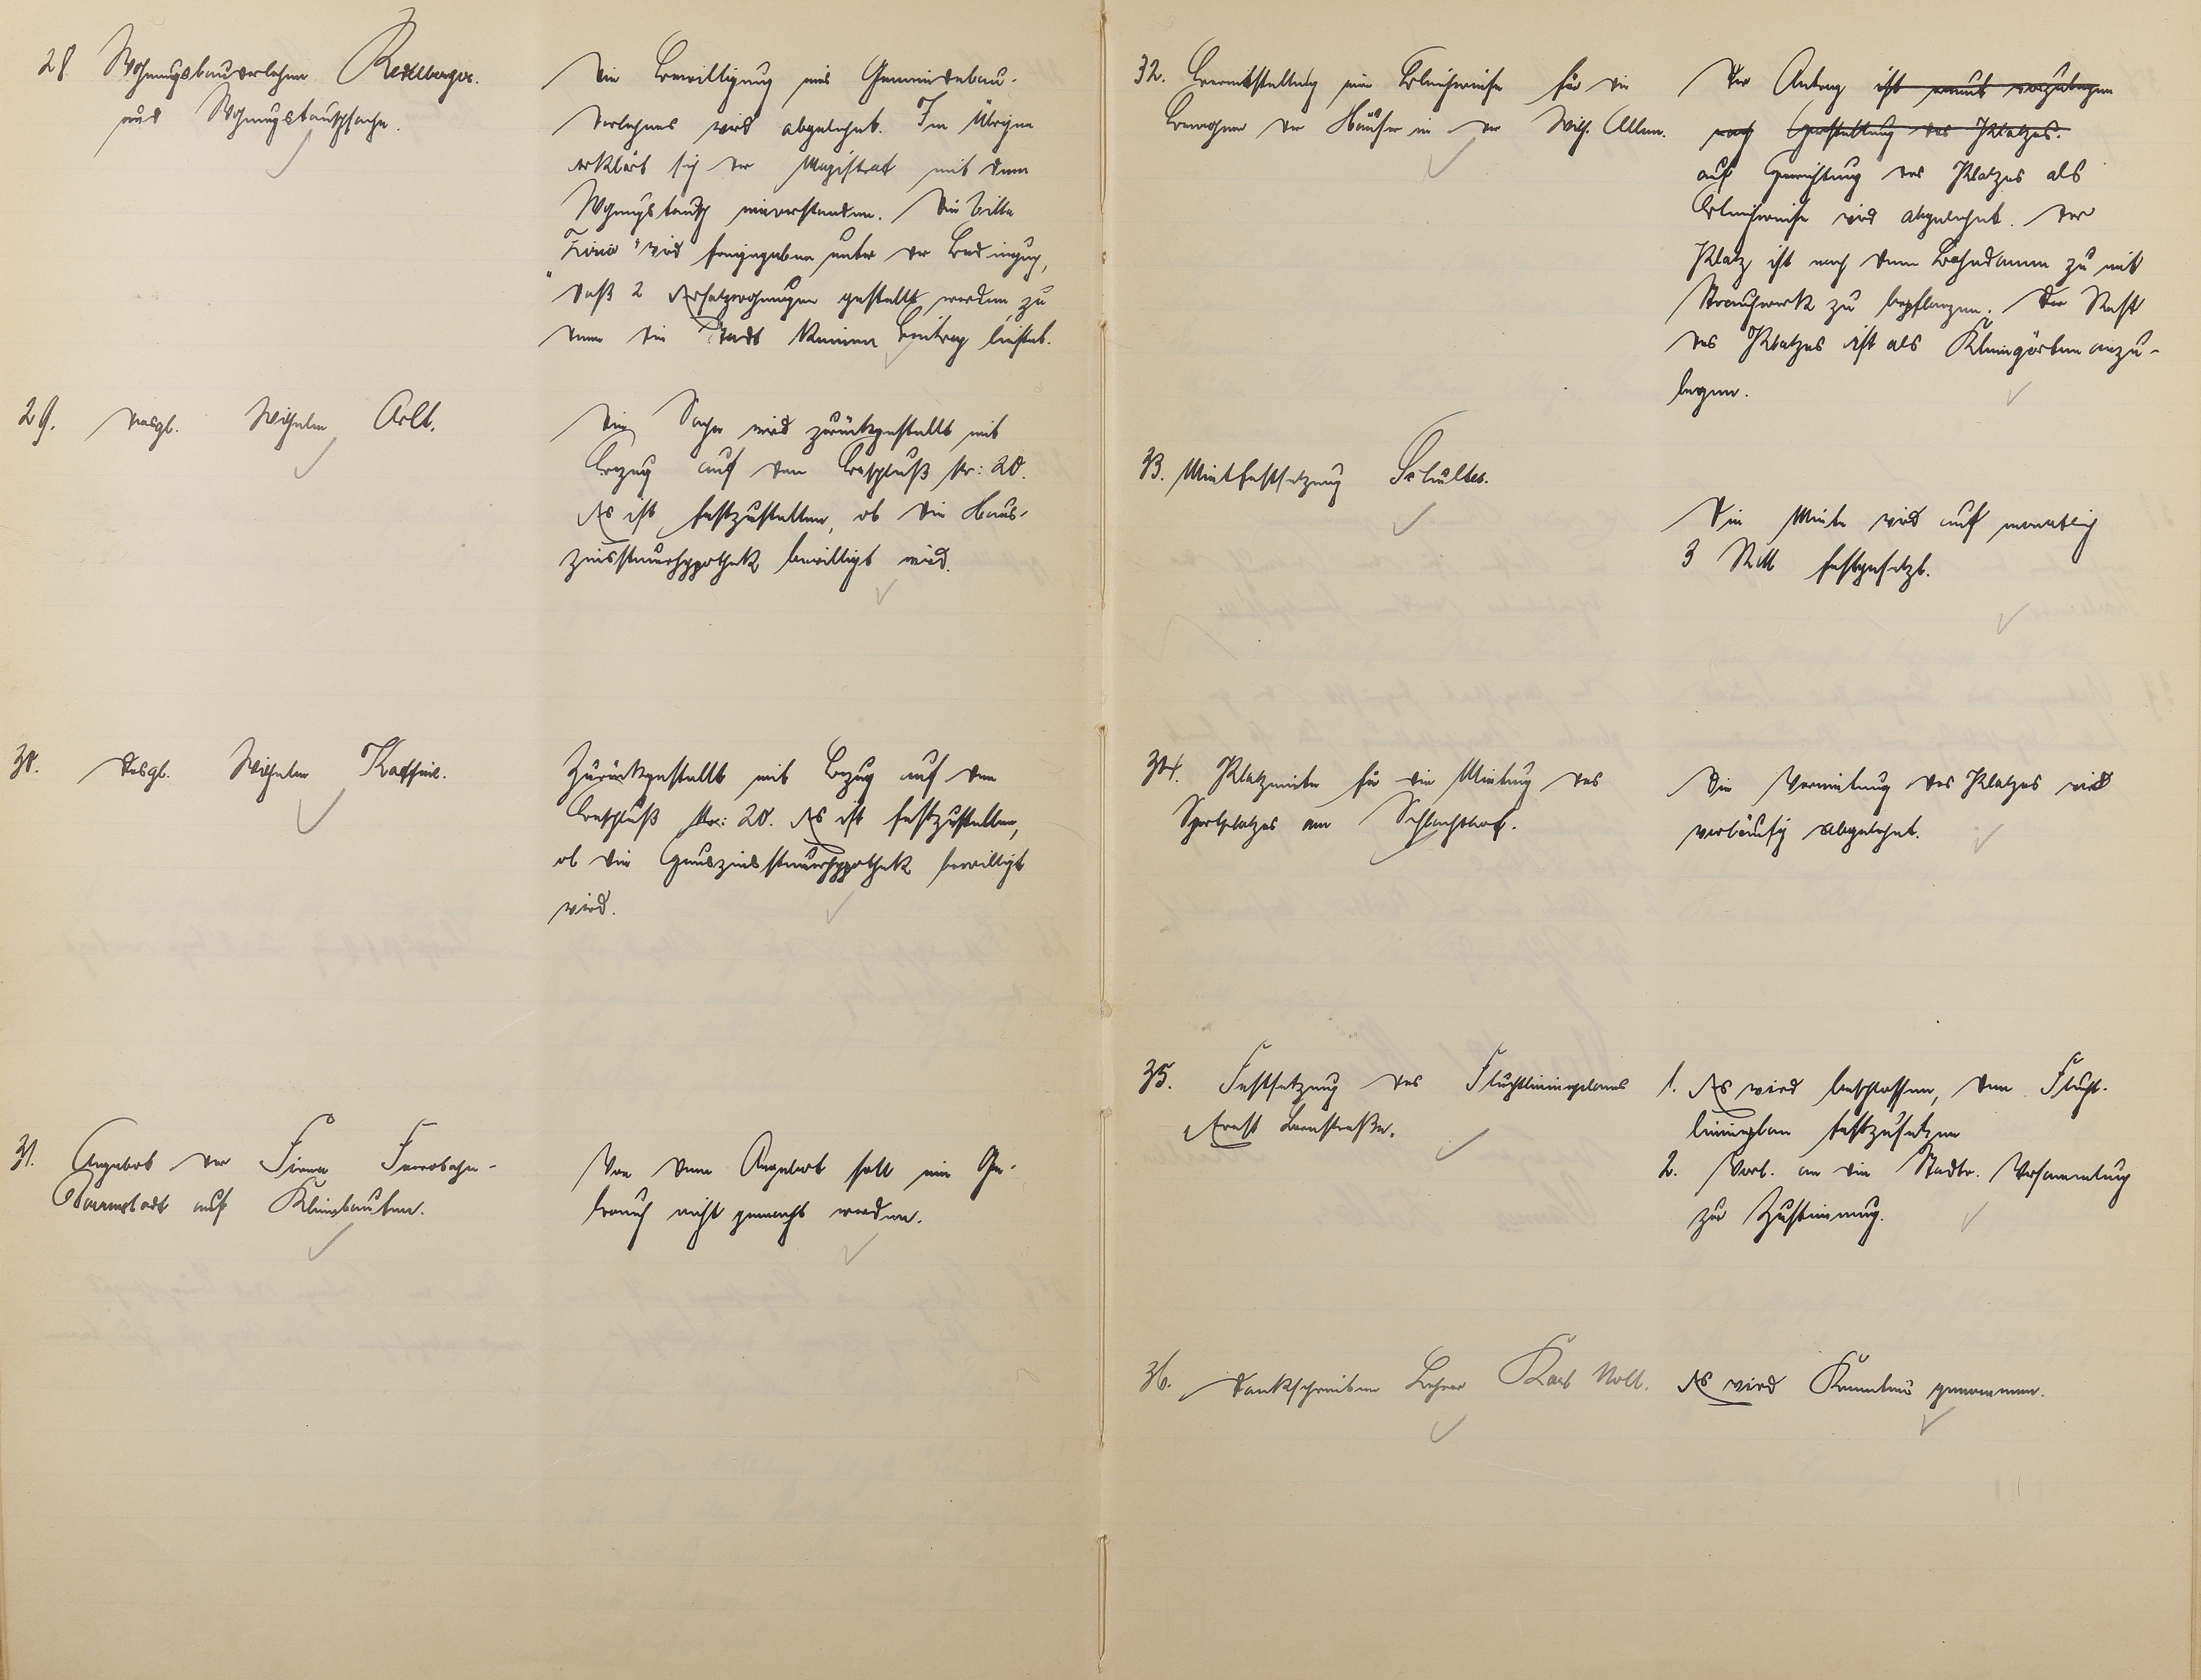 28 Wohnungsbaudarlehen Redelberger.
und Wohnungstauschsache.
Die Bewilligung eines Gemeindebau-
darlehnes wird abgelehnt. Im Übrigen
erklärt sich der Magistrat mit dem
Wohnungstausch einverstanden. Die Villa
"Livia" wird freigegeben unter der Bedingung,
daß 2 Ersatzwohnungen gestellt werden, zu
denen die Stadt keinen Beitrag leistet.
29. desgl. Wilhelm Arlt.
Die Sache wird zurückgestellt mit
Bezug auf den Beschluß Nr: 20.
Es ist festzustellen, ob die Haus-
zinssteuerhypothek bewilligt wird.
30. desgl. Wilhelm
Zurückgestellt mit Bezug auf den
Beschluß Nr: 20. Es ist festzustellen,
ob die Hauszinssteuerhypothek bewilligt
wird.
31. Angebot der Firma Ferrobahn-
Darmstadt auf Kleinbauten.
Von dem Angebot soll ein Ge-
brauch nicht gemacht werden.
32. Bereitstellung eine Bleichwiese für die
Bewohner der Häuser in der Wilh. Allee.
Der Antrag ist erneut vorzulegen
nach Herstellung des Platzes.
auf Herrichtung des Platzes als
Bleichwiese wird abgelehnt. Der
Platz ist nach dem Bahndamm zu mit
Strauchwerk zu bepflanzen. Der Rest
des Platzes ist als Kleingärten anzu-
legen.
33. Mietfestsetzung Schultes.
Die Miete wird auf monatlich
3 RM festgesetzt.
34. Platzmiete für die Mietung des
Sportplatzes am Schlachthof.
Die Vermietung des Platzes wird
vorläufig abgelehnt.
35. Festsetzung des Fluchtlinienplanes
Ernst
1. Es wird beschlossen, den Flucht-
linienplan festzusetzen
2. Vorl. an die Stadtv. Versammlung
zur Zustimmung.
36. Dankschreiben Lehrer Karl Noll.
Es wird Kenntnis genommen.